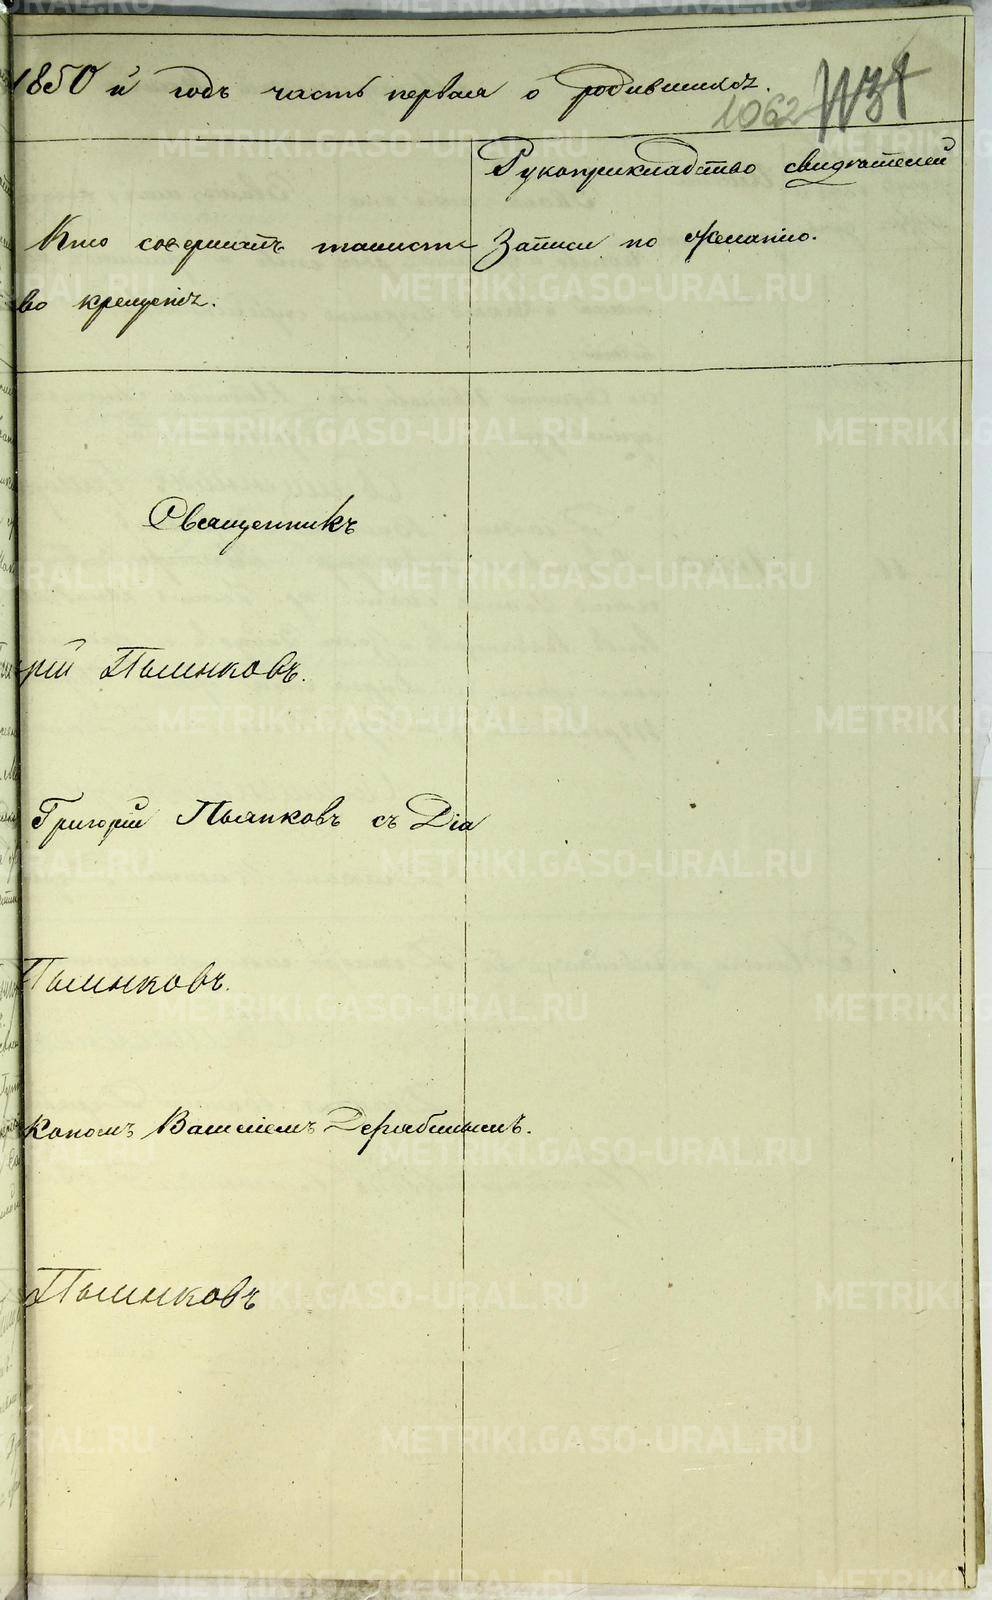 1850 й годъ часть первая о родившихся.
1062
Кто совершалъ таинст
во крещенія.
Рукоприкладство свидѣтелей
Записи по желанію.
Священникъ
рій Пьянковъ.
Григорій Пьянковъ съ Діа
Пьянковъ.
кономъ Василіемъ Дерябинымъ.
Пьянковъ
METRIKI.GASO-URAL.RU